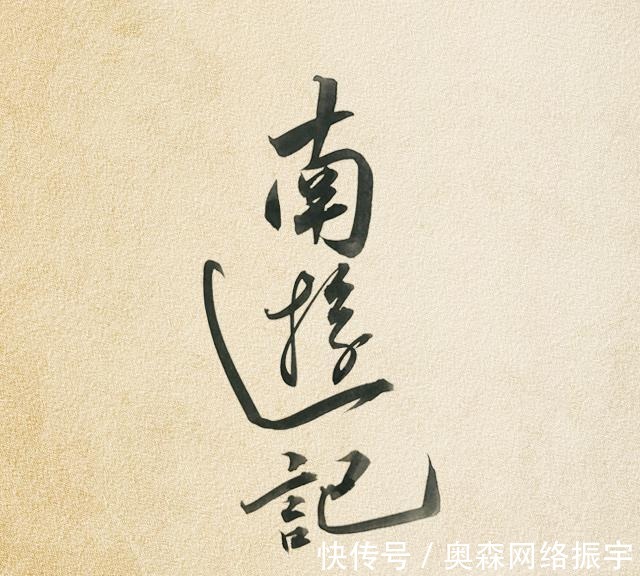 南
遊
記
快传号 / 奥森网络振宇